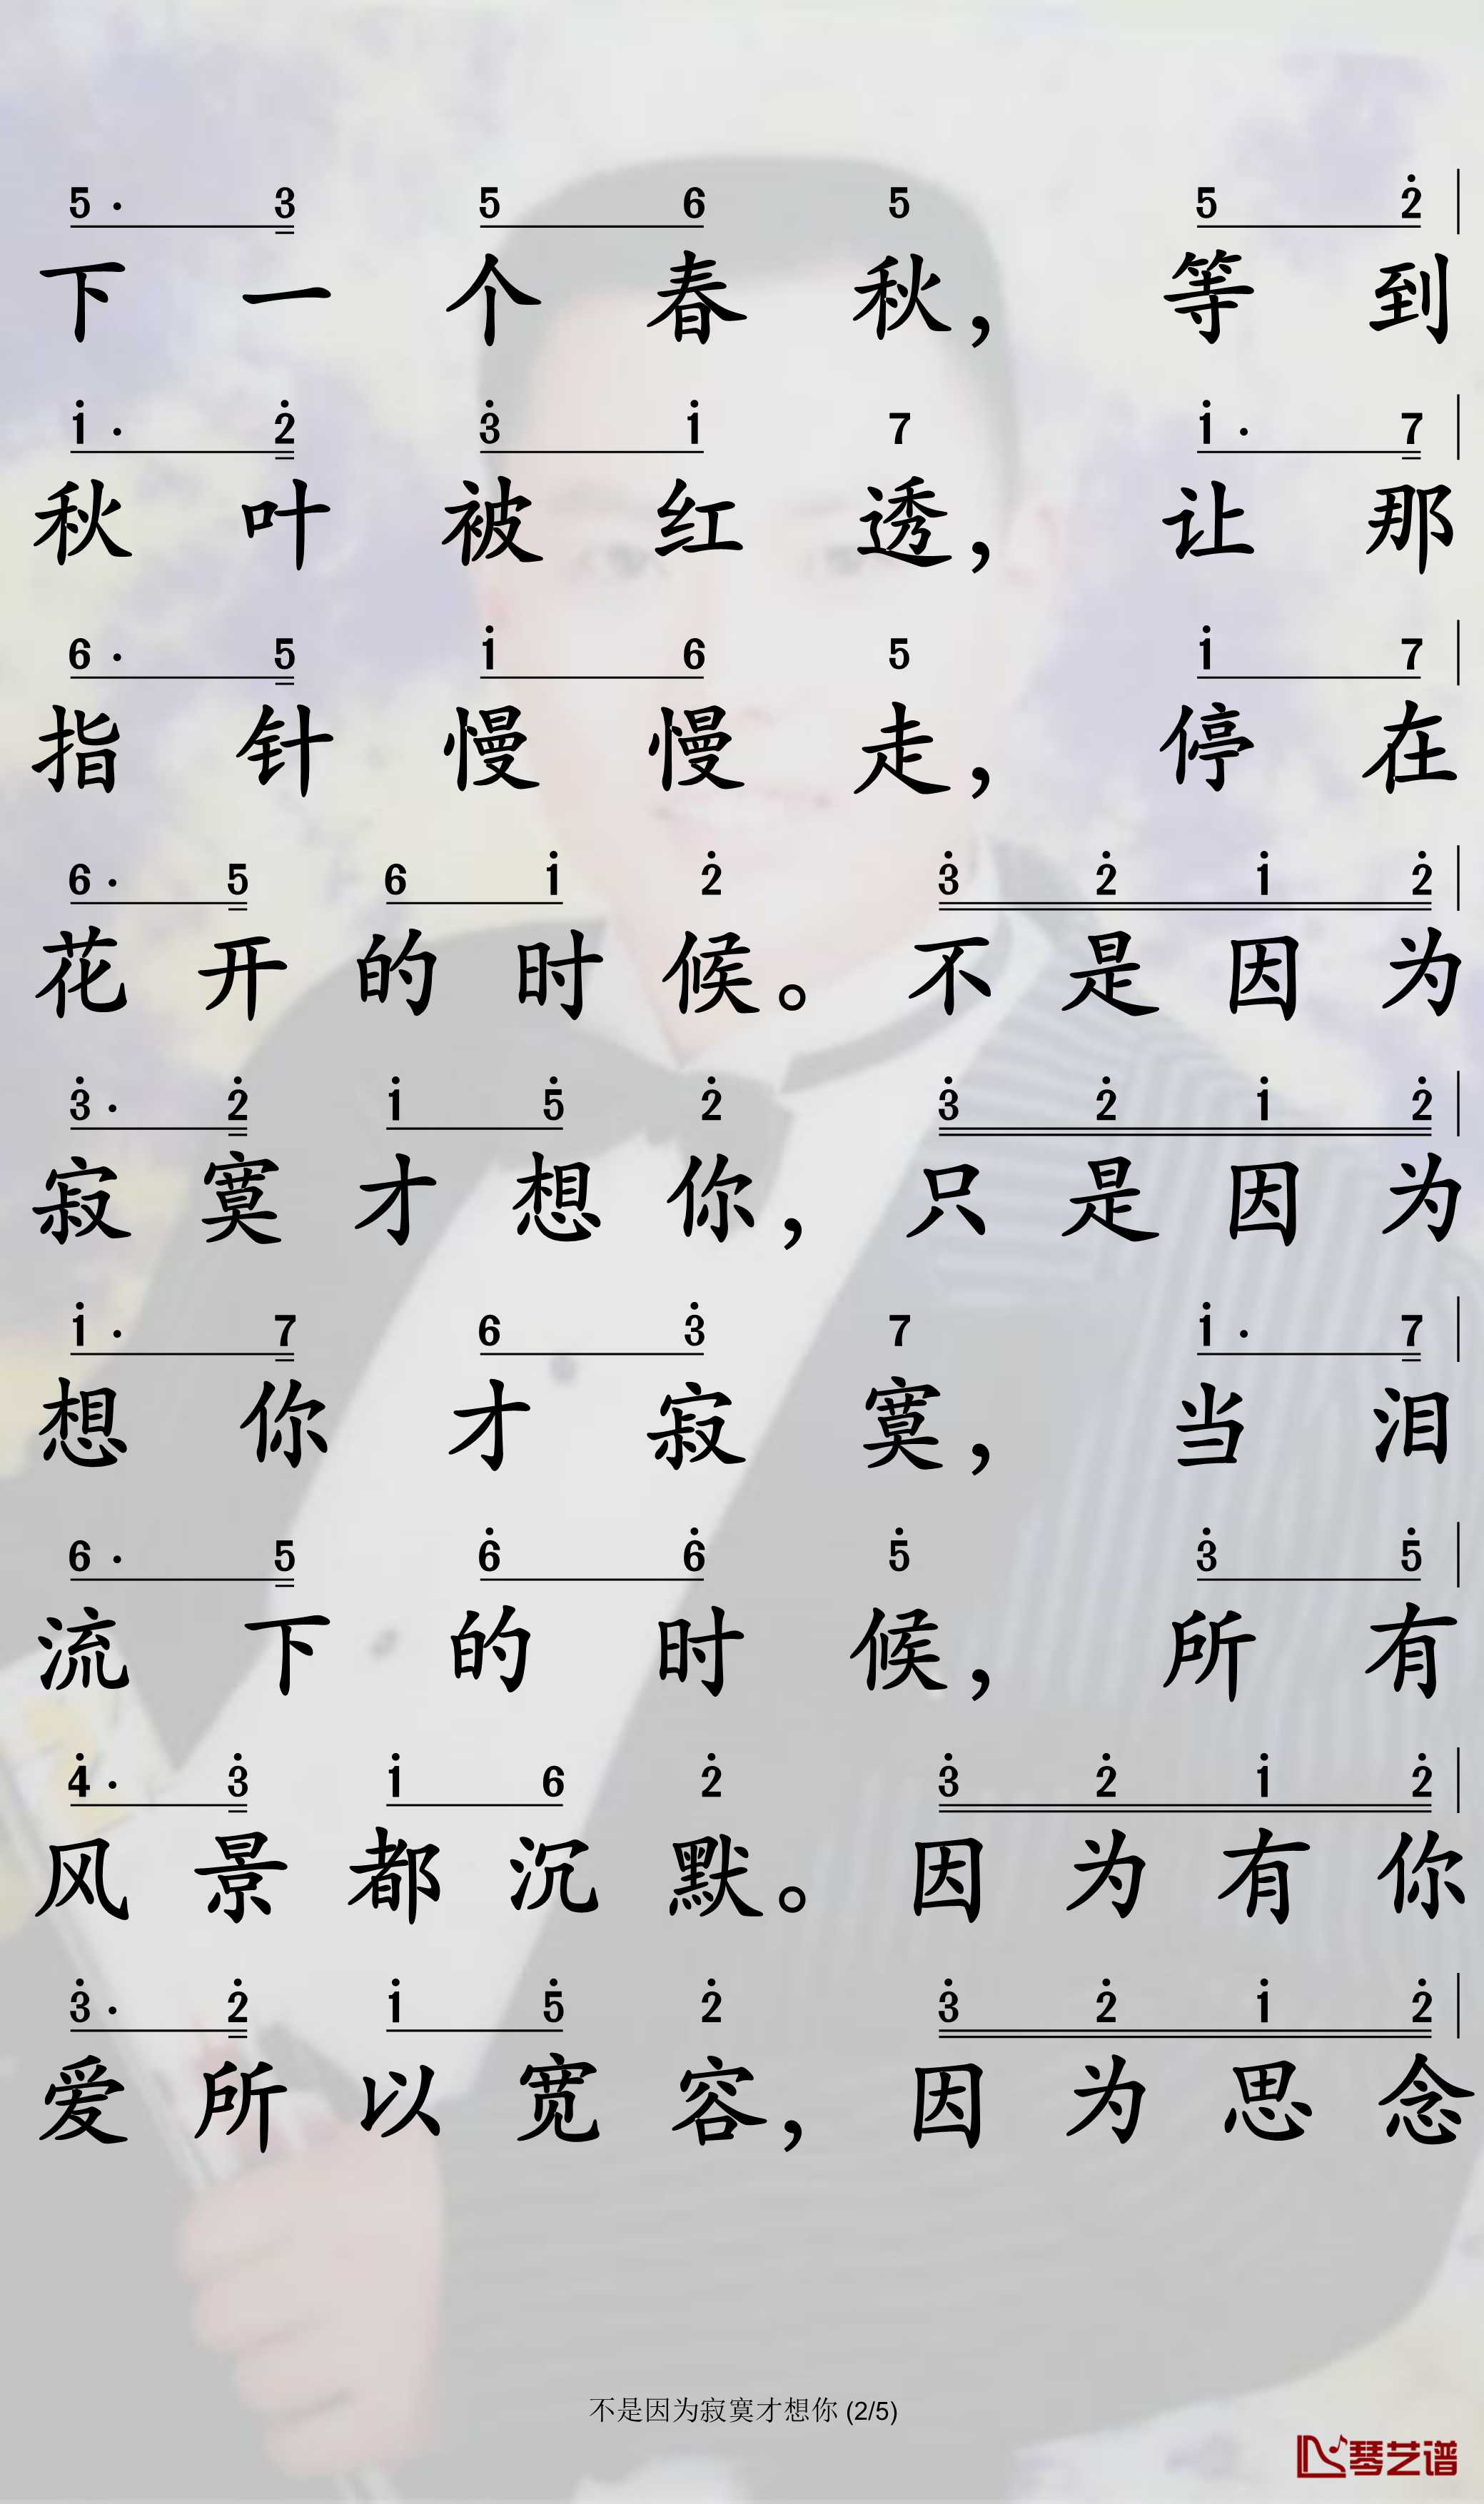 5· 3 5 6 5 5 2̇
下一个春秋， 等到
1̇· 2̇ 3̇ 1̇ 7 1̇· 7
秋叶被红透， 让那
6· 5 1̇ 6 5 1̇ 7
指针慢慢走， 停在
6· 5 6 1̇ 2̇ 3̇ 2̇ 1̇ 2̇
花开的时候。 不是因为
3̇· 2̇ 1̇ 5̇ 2̇ 3̇ 2̇ 1̇ 2̇
寂寞才想你， 只是因为
1̇· 7 6 3̇ 7 1̇· 7
想你才寂寞， 当泪
6· 5 6̇ 6̇ 5̇ 3̇ 5̇
流下的时候， 所有
4̇· 3̇ 1̇ 6 2̇ 3̇ 2̇ 1̇ 2̇
风景都沉默。 因为有你
3̇· 2̇ 1̇ 5̇ 2̇ 3̇ 2̇ 1̇ 2̇
爱所以宽容， 因为思念
不是因为寂寞才想你 (2/5)
琴艺谱